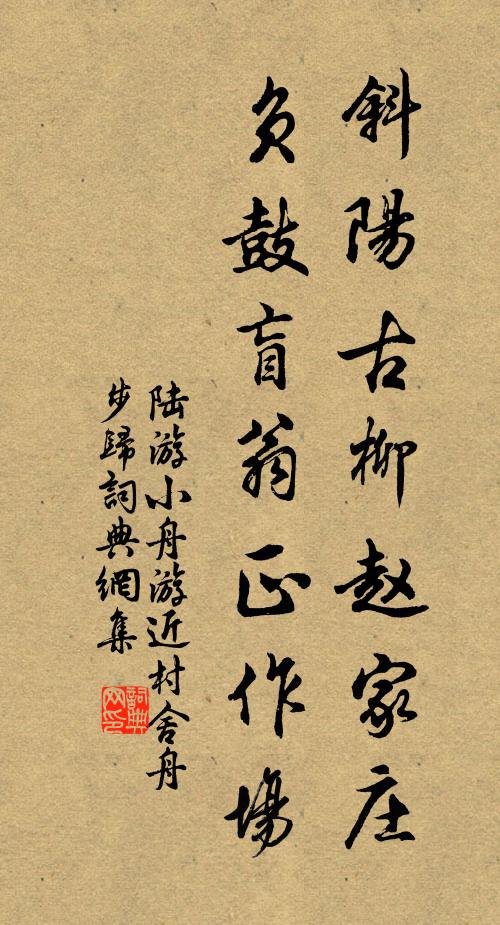 斜陽古柳赵家庄
負鼓盲翁正作場
陆游小舟游近村舍舟
步歸詞典網集
詞典网印